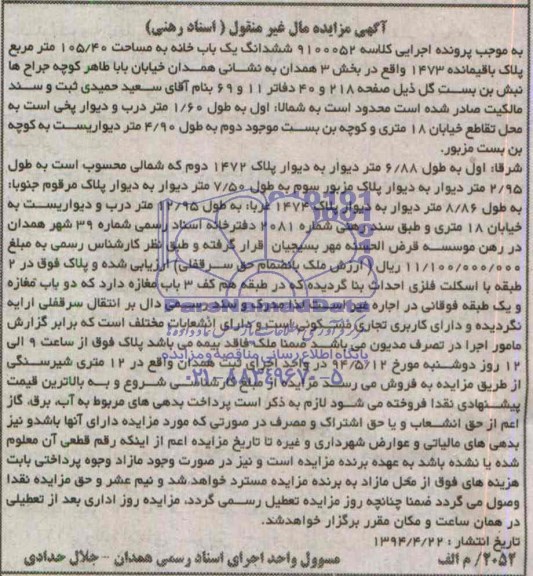 آگهی مزایده مال غیر منقول ( اسناد رهنی)
به موجب پرونده اجرایی کلاسه ۹۱۰۰۰۵۲ ششدانگ یک باب خانه به مساحت ۱۰۵/۴۰ متر مربع
پلاک باقیمانده ۱۴۷۳ واقع در بخش ۳ همدان به نشانی همدان خیابان بابا طاهر کوچه جراح ها
نبش بن بست گل ذیل صفحه ۲۱۸ و ۴۰ دفاتر ۱۱ و ۶۹ بنام آقای سعید حمیدی ثبت و سند
مالکیت صادر شده است محدود است به شمالا: اول به طول ۱/۶۰ متر درب و دیوار پخی است به
محل تقاطع خیابان ۱۸ متری و کوچه بن بست موجود دوم به طول ۴/۹۰ متر دیواریست به کوچه
بن بست مزبور.
شرقا: اول به طول ۶/۸۸ متر دیوار به دیوار پلاک ۱۴۷۲ دوم که شمالی محسوب است به طول
۲/۹۵ متر دیوار به دیوار پلاک مزبور سوم به طول ۷/۵۰ متر دیوار به دیوار پلاک مرقوم جنوبا:
به طول ۸/۸۶ متر دیوار به دیوار پلاک ۱۴۷۴ غربا: به طول ۱۲/۹۵ متر درب و دیواریست به
خیابان ۱۸ متری و طبق سند رهنی شماره ۲۰۸۱ دفترخانه اسناد رسمی شماره ۳۹ شهر همدان
در رهن موسسه قرض الحسنه مهر بسیجیان قرار گرفته و طبق نظر کارشناس رسمی به مبلغ
۱۱/۱۰۰/۰۰۰/۰۰۰ ریال ( ارزش ملک بانضمام حق سرقفلی) ارزیابی شده و پلاک فوق در ۲
طبقه با اسکلت فلزی احداث بنا گردیده که در طبقه هم کف ۳ باب مغازه دارد که دو باب مغازه
و یک طبقه فوقانی در اجاره غیر است لذا مدرک و سند رسمی دال بر انتقال سرقفلی ارایه
نگردیده و دارای کاربری تجاری مسکونی است و دارای انشعابات مختلف است که برابر گزارش
مامور اجرا در تصرف مدیون می باشد ضمنا ملک فاقد بیمه می باشد پلاک فوق از ساعت ۹ الی
۱۲ روز دوشنبه مورخ ۹۴/۵/۱۲ در واحد اجرای ثبت همدان واقع در ۱۲ متری شیرسنگی
از طریق مزایده به فروش می رسد مزایده از مبلغ کارشناسی شروع و به بالاترین قیمت
پیشنهادی نقدا فروخته می شود لازم به ذکر است پرداخت بدهی های مربوط به آب، برق، گاز
اعم از حق انشعاب و یا حق اشتراک و مصرف در صورتی که مورد مزایده دارای آنها باشدو نیز
بدهی های مالیاتی و عوارض شهرداری و غیره تا تاریخ مزایده اعم از اینکه رقم قطعی آن معلوم
شده یا نشده باشد به عهده برنده مزایده است و نیز در صورت وجود مازاد وجوه پرداختی بابت
هزینه های فوق از محل مازاد به برنده مزایده مسترد خواهد شد و نیم عشر و حق مزایده نقدا
وصول می گردد ضمنا چنانچه روز مزایده تعطیل رسمی گردد، مزایده روز اداری بعد از تعطیلی
در همان ساعت و مکان مقرر برگزار خواهدشد.
تاریخ انتشار : ۱۳۹۴/۴/۲۲
۲۰۵۲/ م الف
مسوول واحد اجرای اسناد رسمی همدان - جلال حدادی
پایگاه اطلاع رسانی مناقصه و مزایده
۰۲۱-۸۸۳۴۹۶۷۰-۵